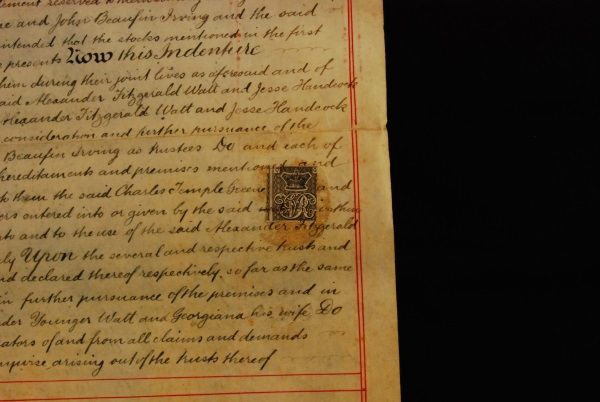 reserved to
me and John Beaufin Irving and the said
intended that the stocks mentioned in the first
presents Now this Indenture
them during their joint lives as aforesaid and of
said Alexander Fitzgerald Watt and Jesse Handcock
Alexander Fitzgerald Watt and Jesse Handcock
consideration and further pursuance of the
Beaufin Irving as trustees Do and each of
hereditaments and premises mentioned and
them the said Charles Temple and
ors entered into or given by the said
and to the use of the said Alexander Fitzgerald
Upon the several and respective trusts and
nd declared thereof respectively so far as the same
in further pursuance of the premises and in
nder Younger Watt and Georgiana his wife Do
ators of and from all claims and demands
arising out of the trusts thereof
VR